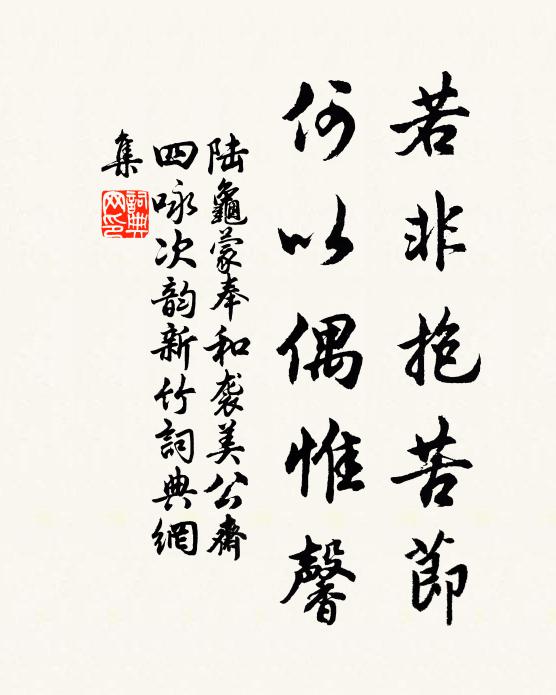 若非抱苦節
何以偶惟馨
陆龜蒙奉和袭美公齋
四咏次韵新竹詞典網
集
詞典
网印